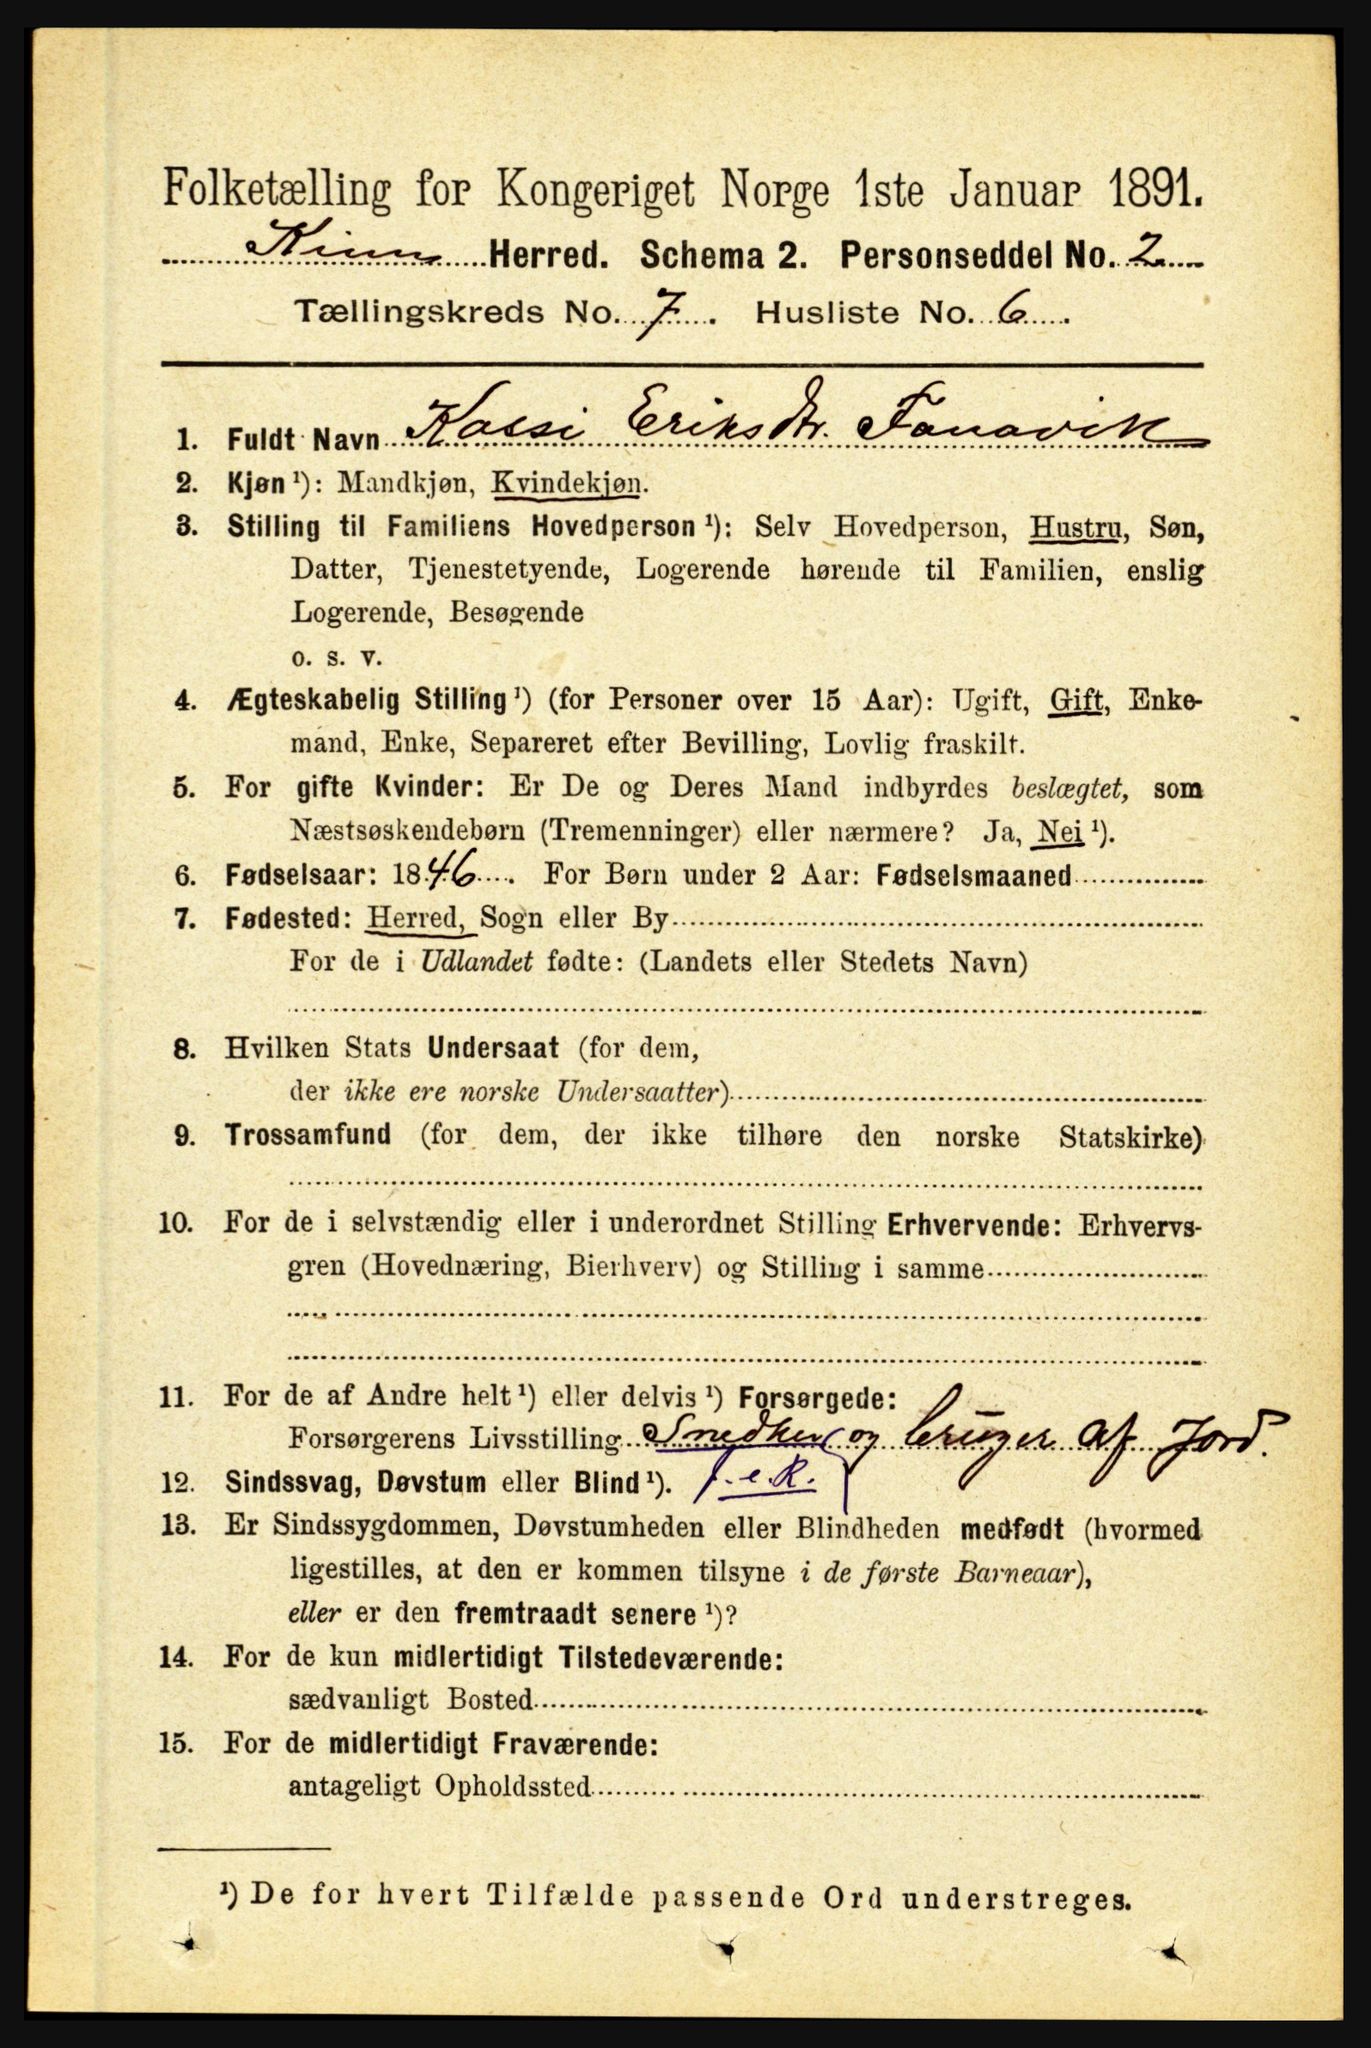 Folketælling for Kongeriget Norge 1ste Januar 1891.
Kinn Herred. Schema 2. Personseddel No. 2
Tællingskreds No. 7. Husliste No. 6.
1. Fuldt Navn Kassi Eriksdtr. Fanavik
2. Kjøn ¹): Mandkjøn, Kvindekjøn.
3. Stilling til Familiens Hovedperson ¹): Selv Hovedperson, Hustru, Søn,
Datter, Tjenestetyende, Logerende hørende til Familien, enslig
Logerende, Besøgende
o. s. v.
4. Ægteskabelig Stilling ¹) (for Personer over 15 Aar): Ugift, Gift, Enke-
mand, Enke, Separeret efter Bevilling, Lovlig fraskilt.
5. For gifte Kvinder: Er De og Deres Mand indbyrdes beslægtet, som
Næstsøskendebørn (Tremenninger) eller nærmere? Ja, Nei ¹).
6. Fødselsaar: 1846. For Børn under 2 Aar: Fødselsmaaned
7. Fødested: Herred, Sogn eller By
For de i Udlandet fødte: (Landets eller Stedets Navn)
8. Hvilken Stats Undersaat (for dem,
der ikke ere norske Undersaatter)
9. Trossamfund (for dem, der ikke tilhøre den norske Statskirke)
10. For de i selvstændig eller i underordnet Stilling Erhvervende: Erhvervs-
gren (Hovednæring, Bierhverv) og Stilling i samme
11. For de af Andre helt ¹) eller delvis ¹) Forsørgede:
Forsørgerens Livsstilling Snedker og bruger af Jord.
12. Sindssvag, Døvstum eller Blind ¹). f. e. R.
13. Er Sindssygdommen, Døvstumheden eller Blindheden medfødt (hvormed
ligestilles, at den er kommen tilsyne i de første Barneaar),
eller er den fremtraadt senere ¹)?
14. For de kun midlertidigt Tilstedeværende:
sædvanligt Bosted
15. For de midlertidigt Fraværende:
antageligt Opholdssted
¹) De for hvert Tilfælde passende Ord understreges.